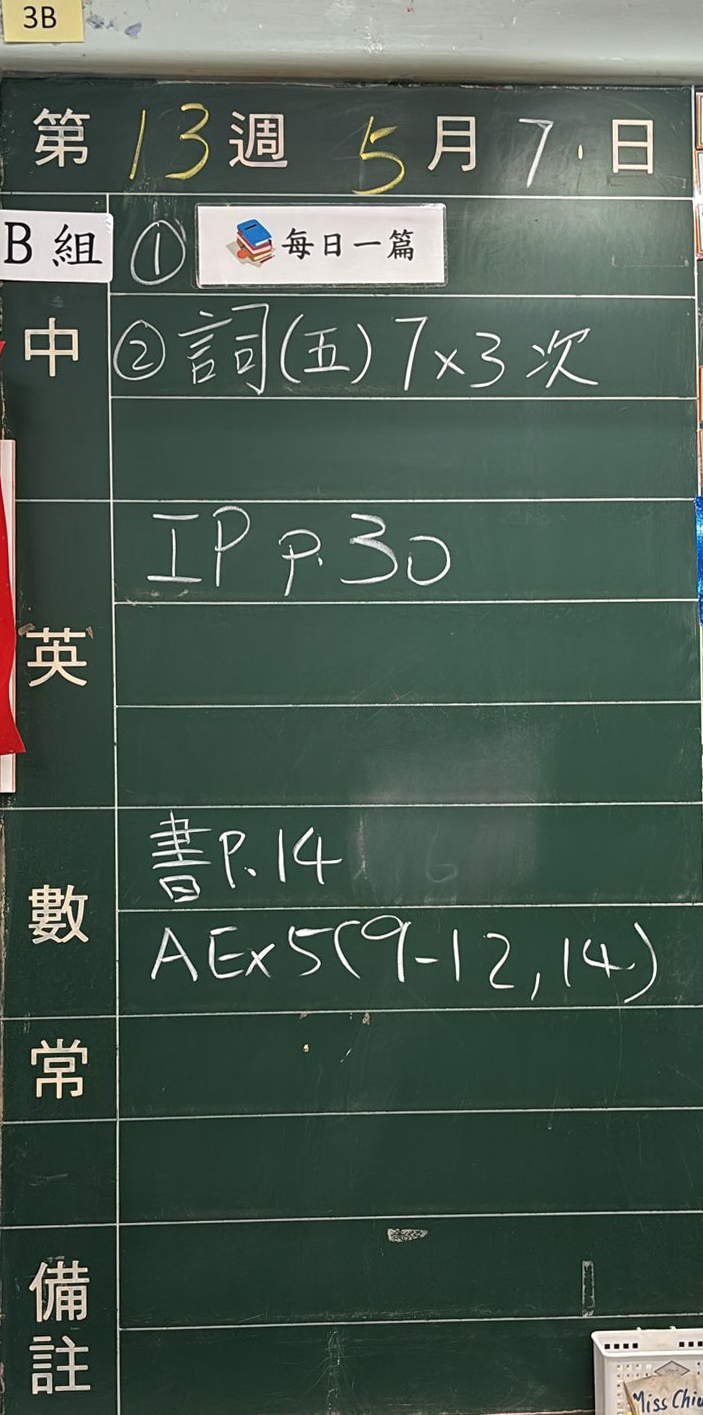 3B
第 13 週 5 月 7 日
B 組 ① 每日一篇
中 ② 詞(五) 7×3 次
IP P.30
英
書 P.14
數
AEx5(9-12, 14)
常
備
註
Miss